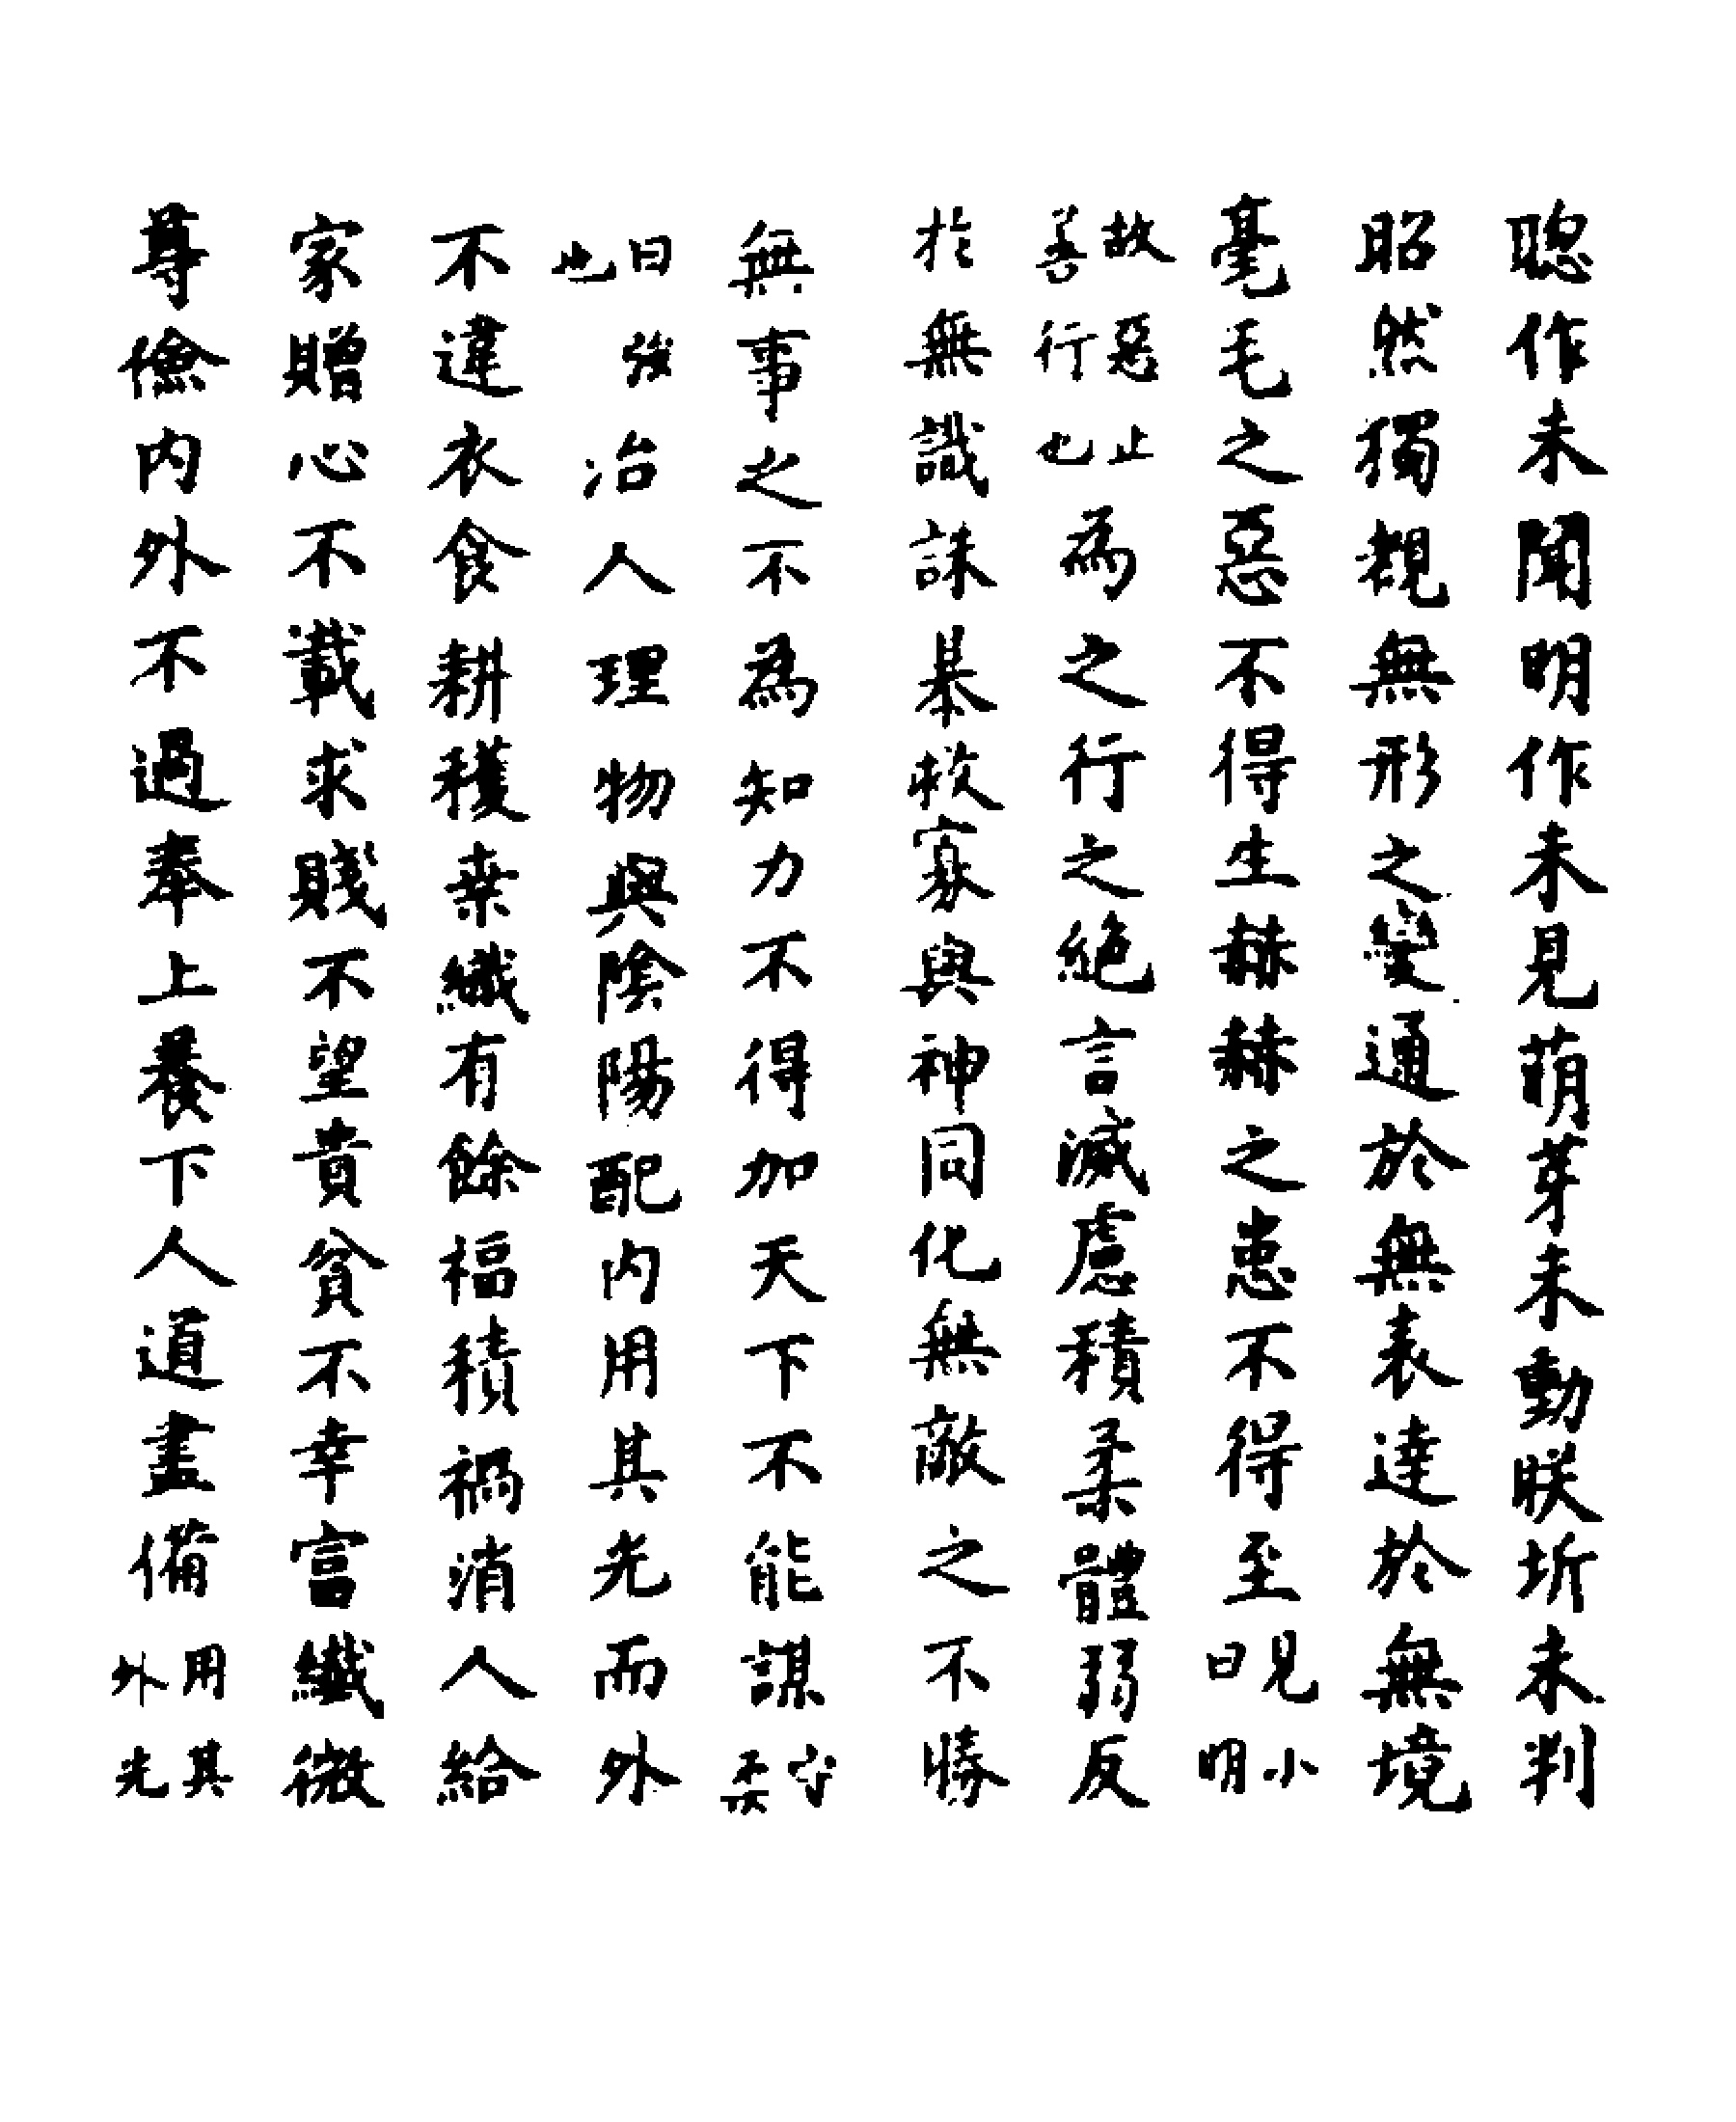 聰作未聞明作未見萌芽未動眹圻未判
昭然獨覩無形之變通於無表達於無境
毫毛之惡不得生赫赫之患不得至見小曰明
故惡止善行也為之行之絶言滅慮積柔體弱反
於無識誅暴救寡與神同化無敵之不勝
無事之不為知力不得加天下不能謀守柔
曰強也冶人理物與陰陽配内用其光而外
不違衣食耕穫桒織有餘福積禍消人給
家贈心不載求賤不望貴貧不幸富纎微
尊儉内外不過奉上養下人道盡備用其外光